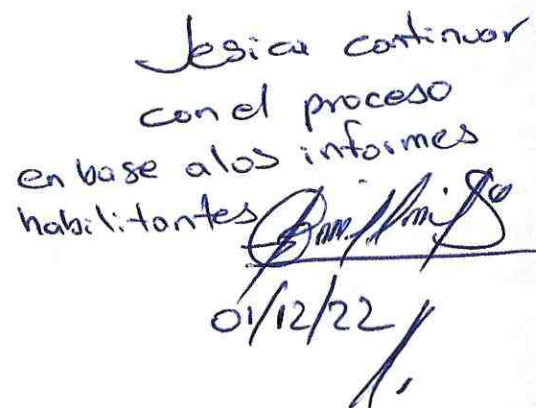 Jesica continuar
con el proceso
en base alos informes
habilitantes
01/12/22